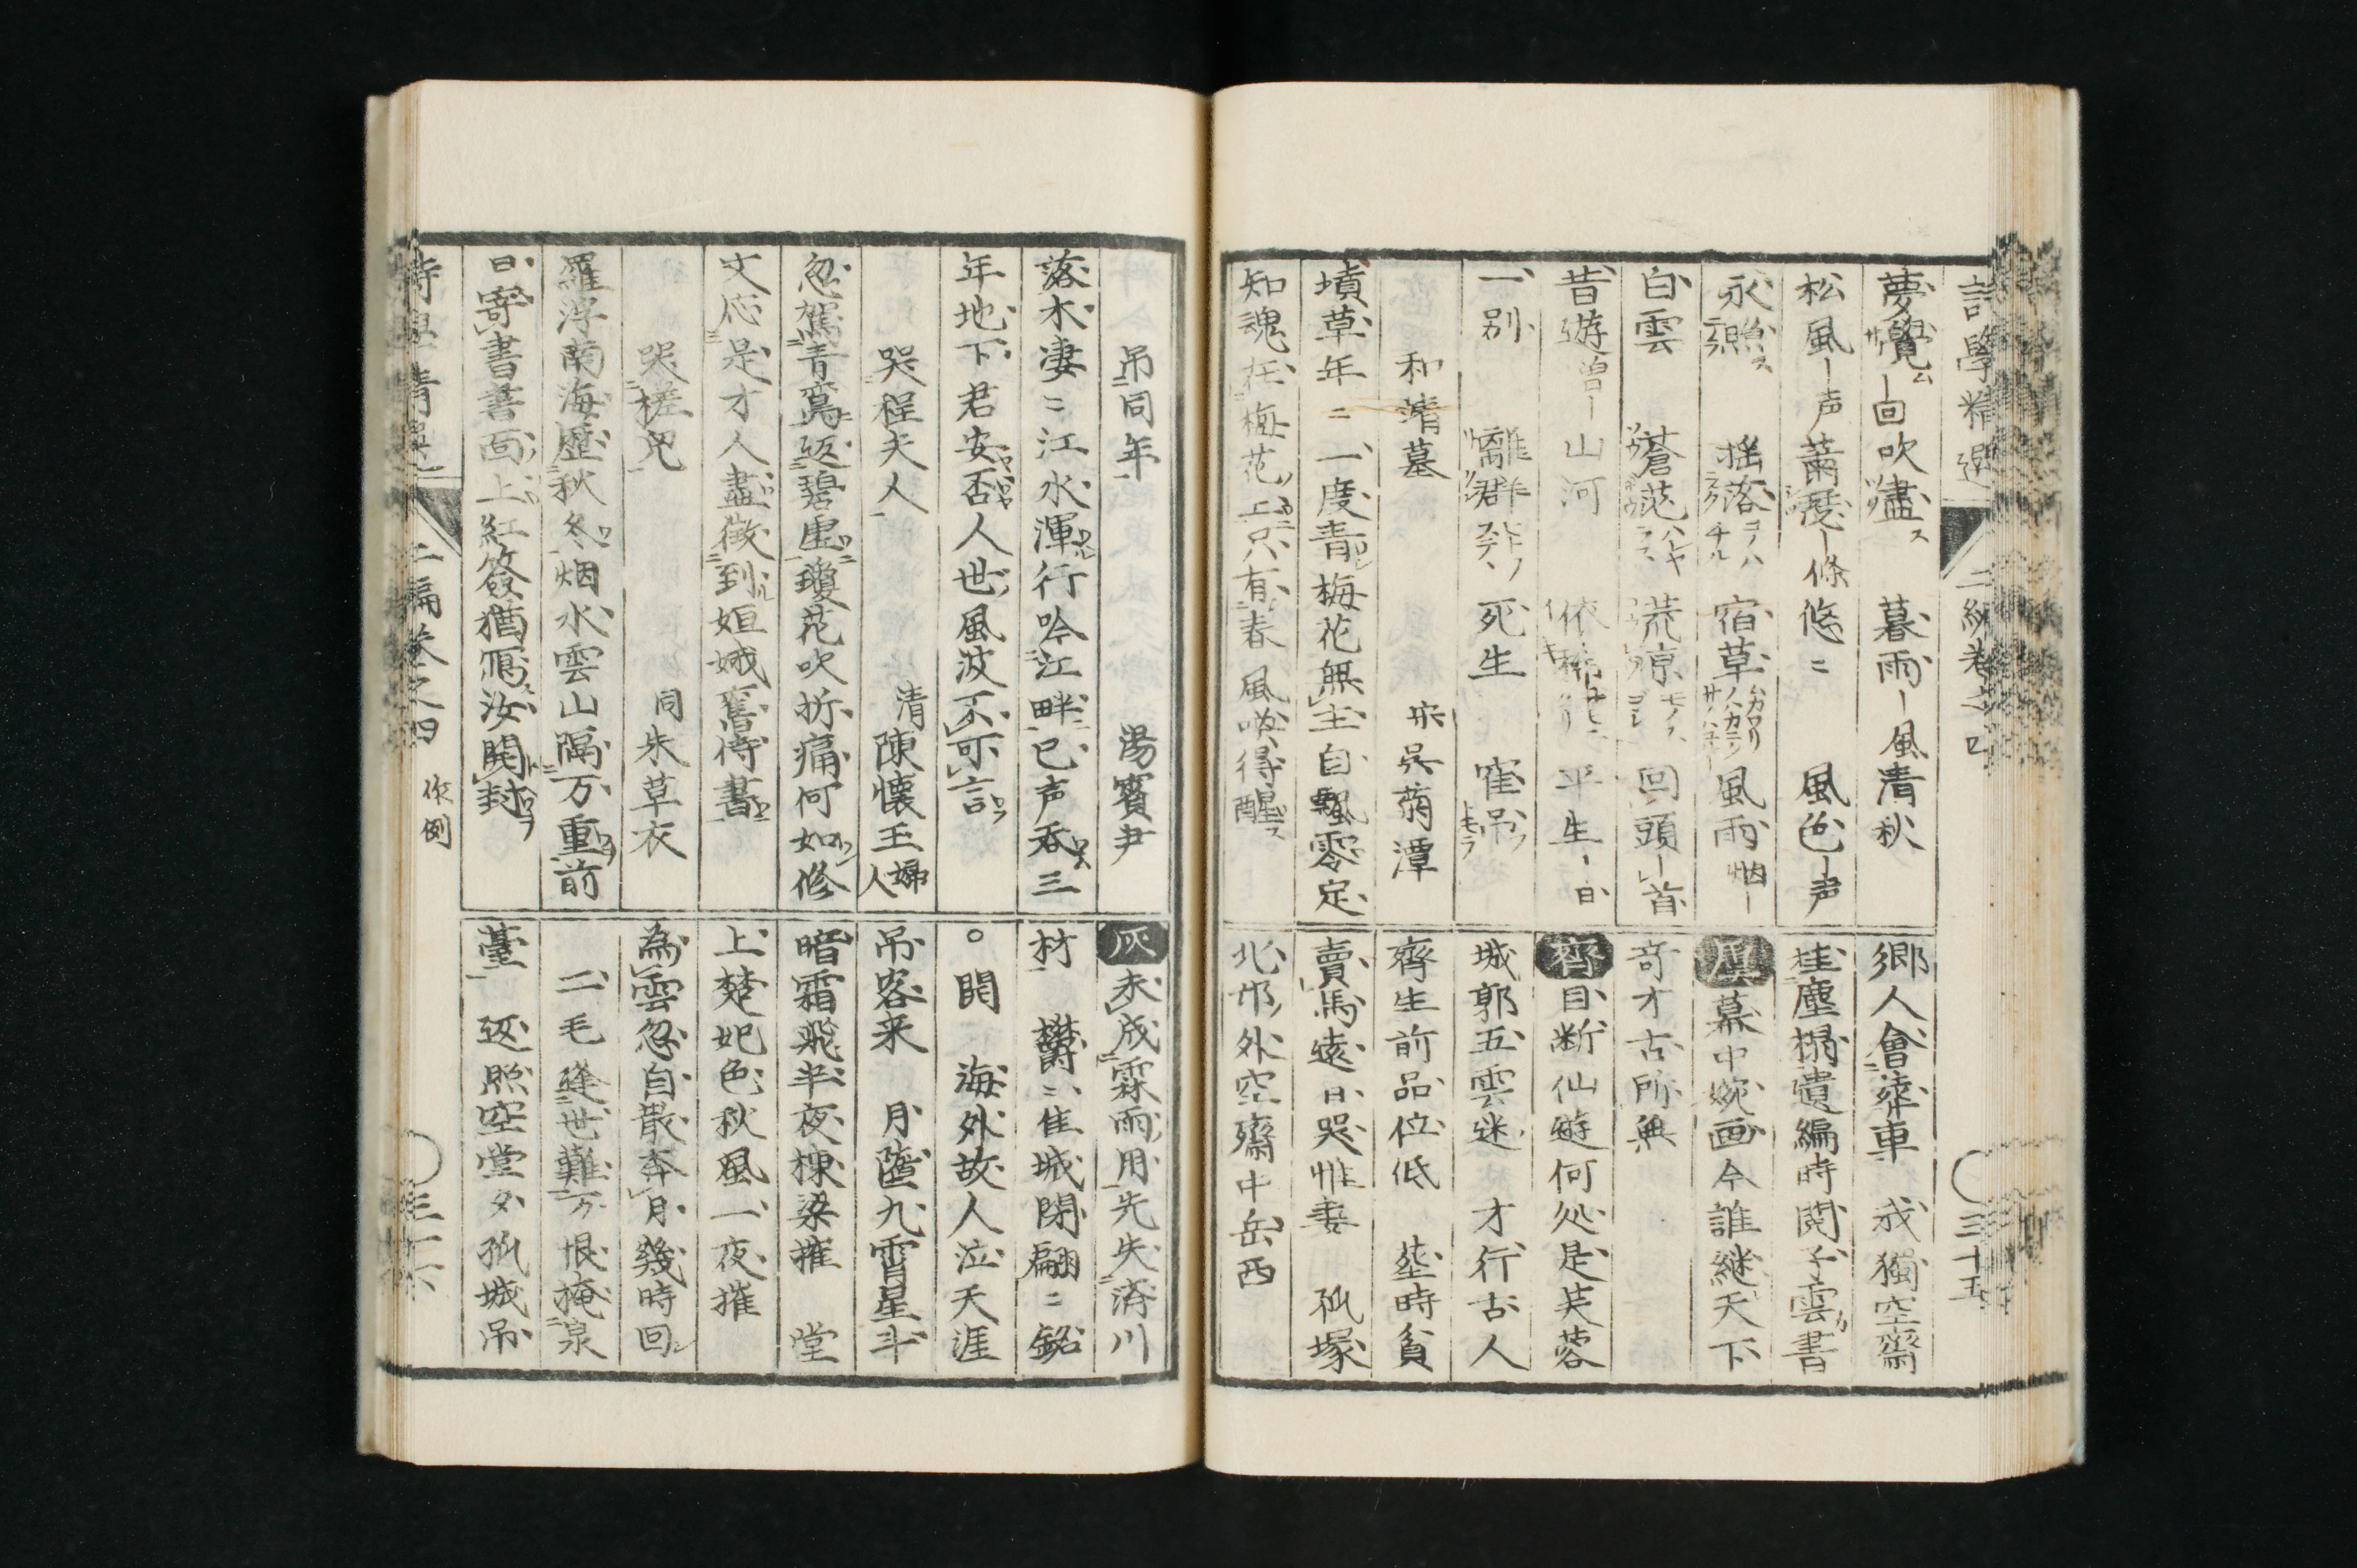 夢覺ー回吹盡 暮雨ー風清秋
松風ー声蕭瑟ー條 悠〻 風色ー声
永照 搖落 宿草 風雨烟ー
白雲 蒼茫 荒凉 回頭ー首
昔遊曽ー山河 依稀 平生ー日
一別 離群 死生
和靖墓 宋 呉菊潭
墳草年〻一度青梅花無主自飄零定
知魂在梅花上只有春風喚得醒
郷人會葬車 我獨空齋
桂塵榻遺編時閲子雲書
幕中婉画今誰継天下
奇才古所無
齊 目断仙遊何処是芙蓉
城郭五雲迷 才行古人
齊生前品位低 塟時貧
賣馬遠日哭惟妻 孤塚
北邙外空齋中岳西
詩學精選 二編巻之四 三十五
吊同年 湯賓尹
落木凄〻江水渾行吟江畔已声呑三
年地下君安否人世風波不可言
哭程夫人 清 陳懐玉婦人
忽駕青鸞返碧虚瓊花吹折痛何如修
文応是才人盡徴到姮娥舊侍書
哭槎兒 同 朱草衣
羅浮南海歴秋冬烟水雲山隔万重前
日寄書書面上紅簽猶冩汝開封
灰 未成霖雨用先失済川
材 欝〻隹城閉翩〻銘
〇開 海外故人泣天涯
吊客来 月墮九霄星斗
暗霜飛半夜棟梁摧 堂
上楚妃色秋風一夜摧
為雲忽自散奔月幾時回
二毛逢世難万恨掩泉
臺 返照空堂夕孤城吊
詩學精選 二編巻之四 作例 三十六